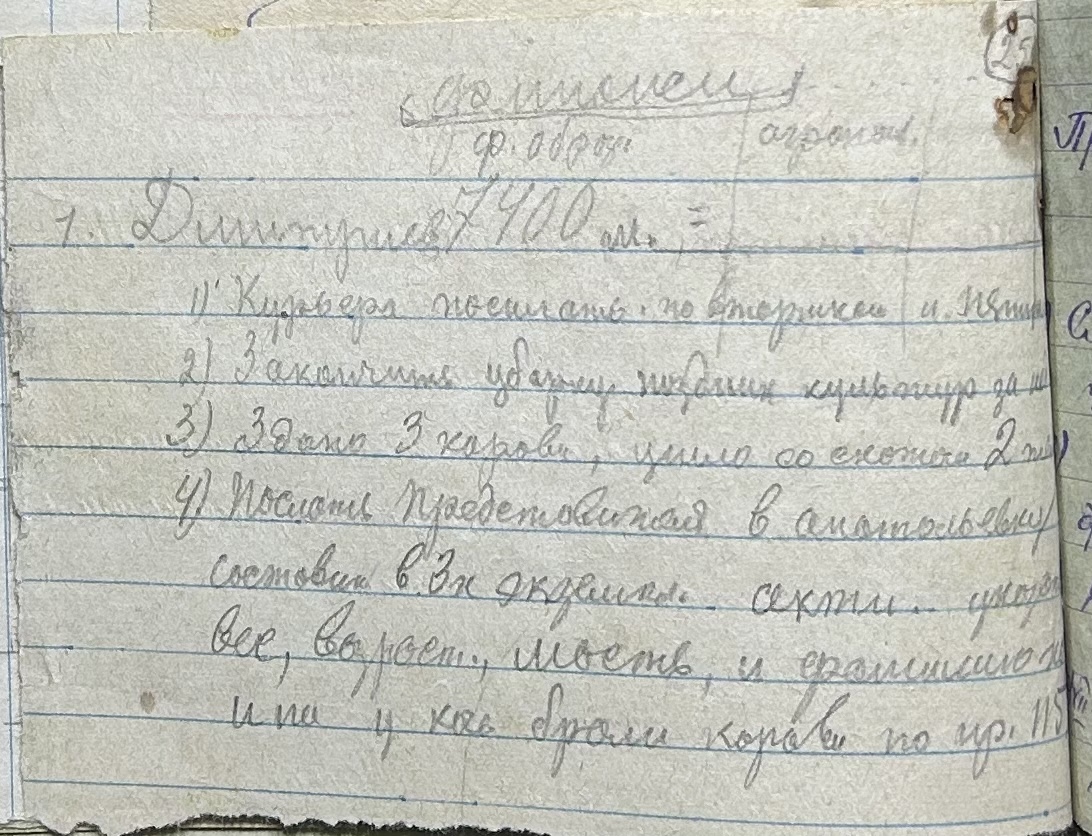 25
ф. образ. агроном.
1. Дмитриев 7400 м. =
1) Курьера посылать по вторникам и пятни
2) Закончить уборку поздних культур за
3) Здано 3 коровы, со скотом 2
4) Послать Представителя в анатольевку
составить в 3х экземпл. акты
вес, возраст, масть, и фамилию
у кого брали корови по пр. 115